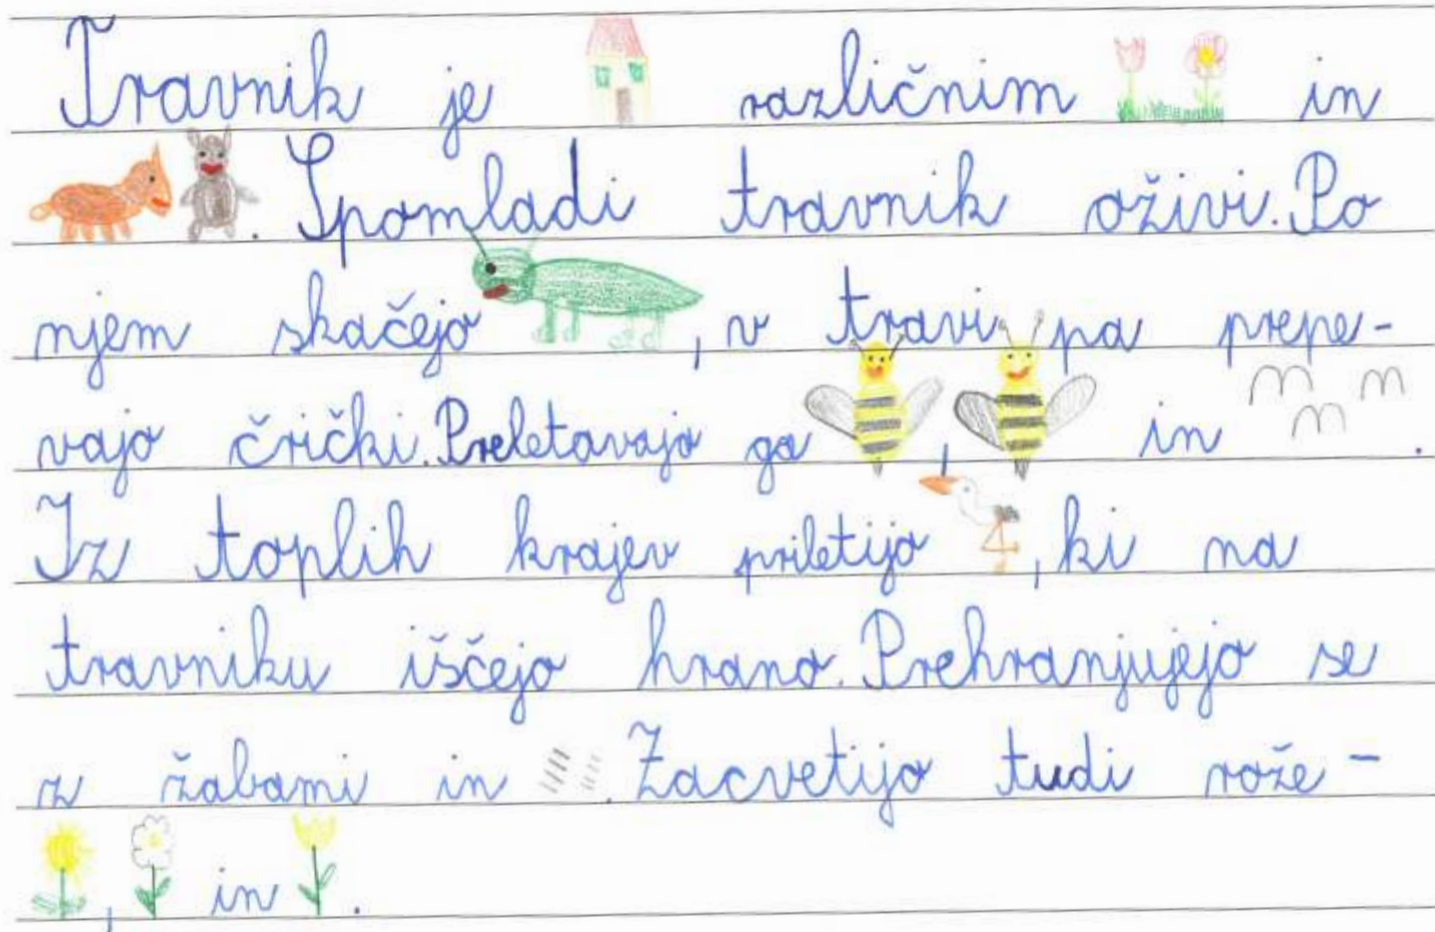 Travnik je različnim in
. Spomladi travnik oživi. Po
njem skačejo , v travi pa prepe-
vajo črički. Preletavajo ga , in .
Iz toplih krajev priletijo , ki na
travniku iščejo hrano. Prehranjujejo se
z žabami in . Zacvetijo tudi rože-
, in .